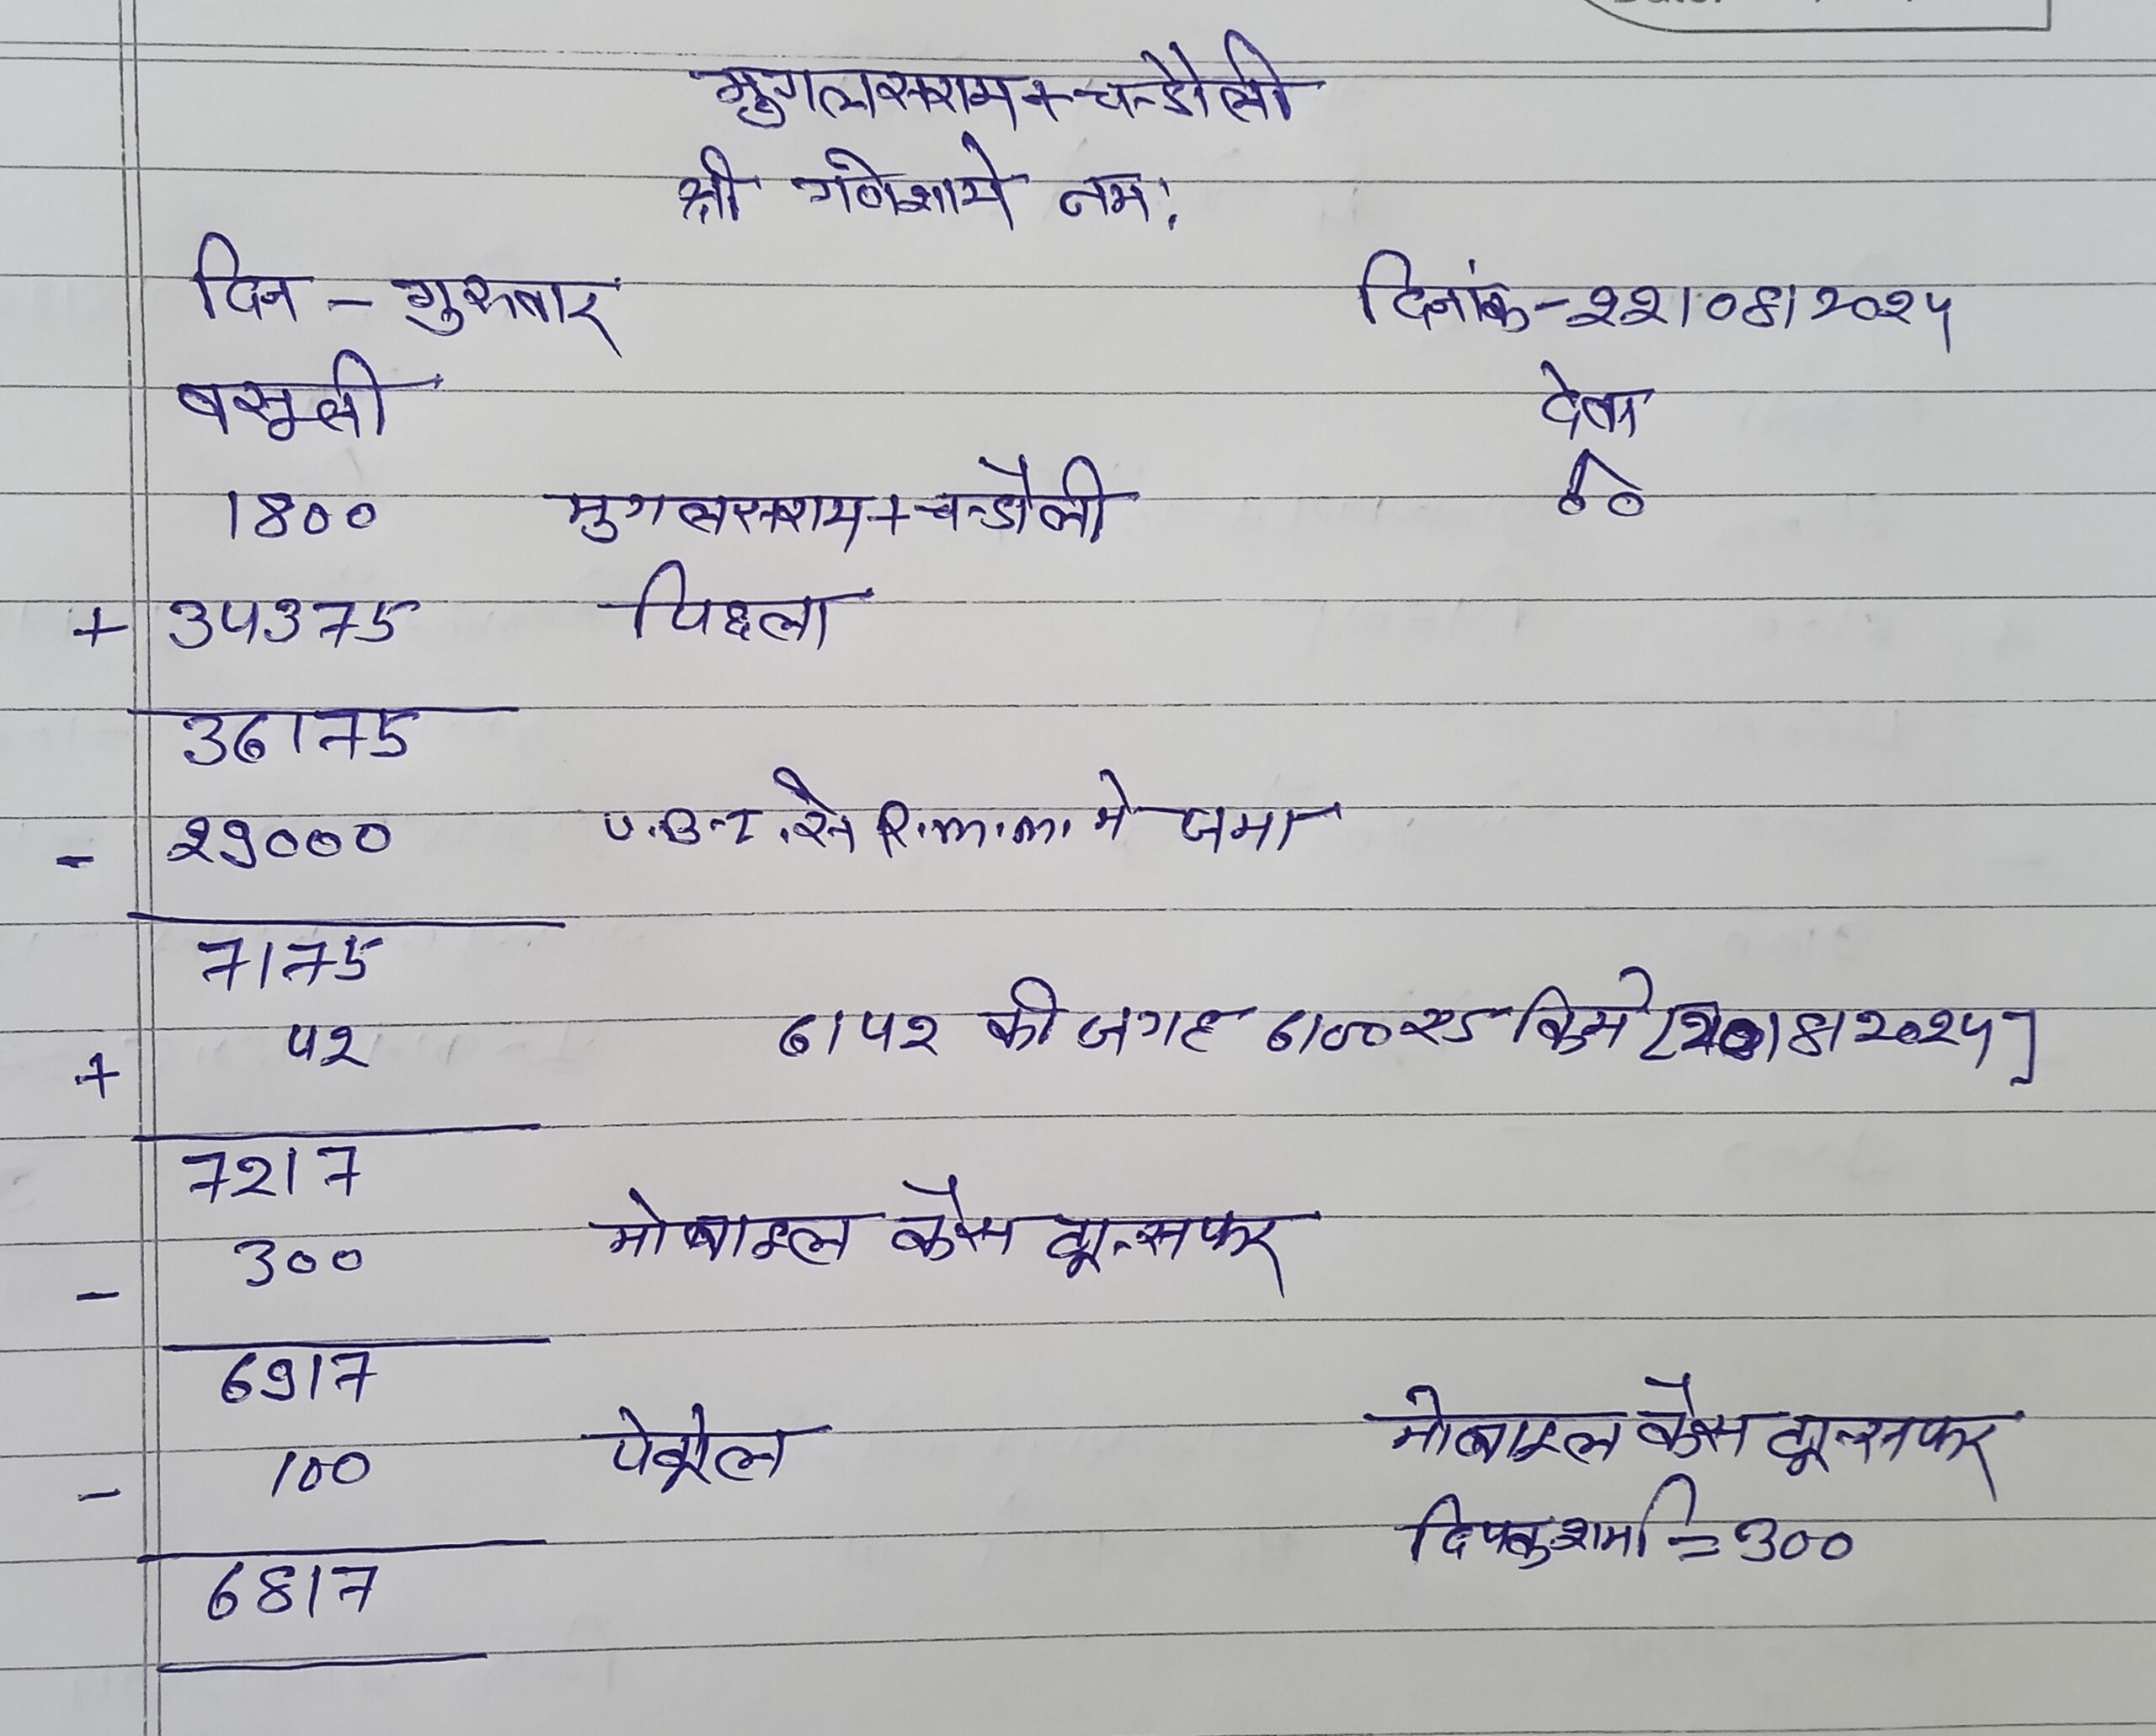 मुगलसराय+चन्डौली
श्री गणेशाये नम:
दिन - गुरुवार दिनांक-22/08/2024
वसूली देवा
1800 मुगलसराय+चन्डौली
+ 34375 पिछला
36175
- 29000 U.B.I. से R.m.m. मे जमा
7175
+ 42 6142 की जगह 6100 एड किये [20/8/2024]
7217
- 300 मोबाइल कैस ट्रान्सफर
6917
- 100 पेट्रोल
6817
मोबाइल कैस ट्रान्सफर
दिपक शर्मा = 300